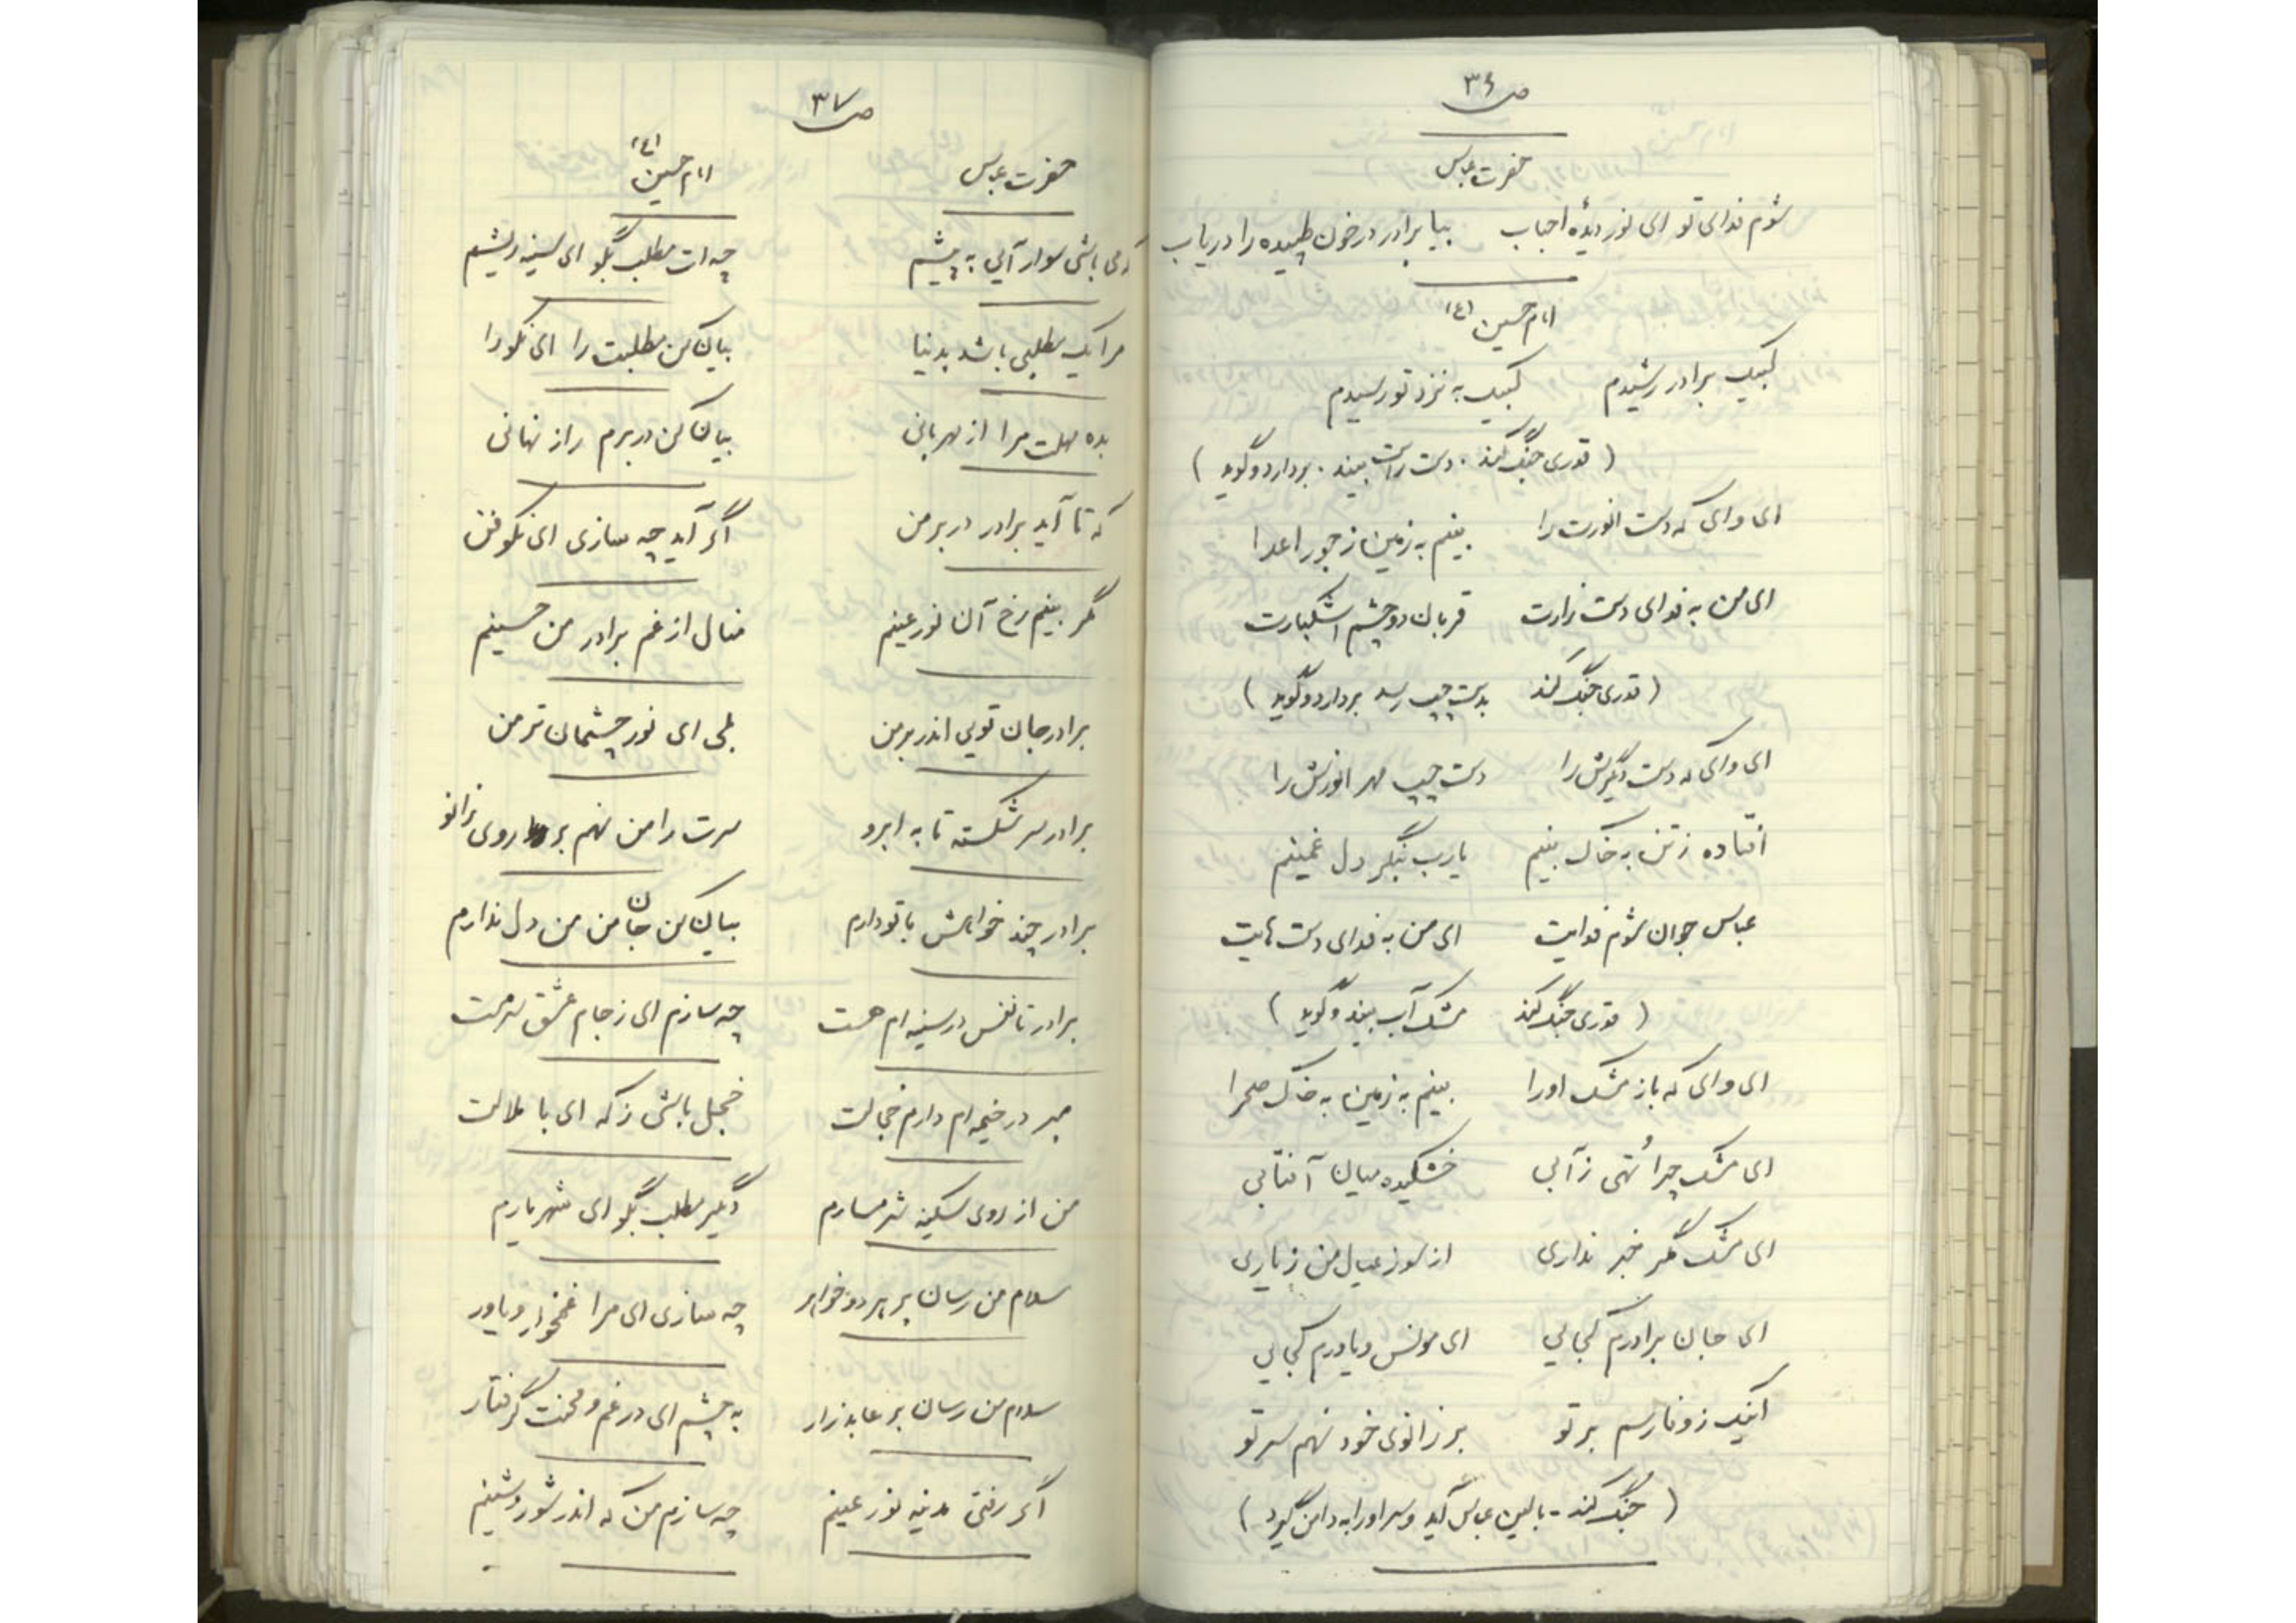 ص ۳۶
حضرت عباس
شوم فدای تو ای نور دیدهٔ احباب بیا برادر در خون طپیده را دریاب
امام حسین (ع)
لبیک برادر رشیدم لبیک به نزد تو رسیدم
( قدری جنگ کند . دست راست بیند . بردارد و گوید )
ای وای که دست انورت را بینم به زمین ز جور اعدا
ای من به فدای دست زارت قربان دو چشم اشکبارت
( قدری جنگ کند بدست چپ رسد بردارد و گوید )
ای وای که دست دیگرش را دست چپ مهر انورش را
افتاده ز تن به خاک بینم یارب بنگر دل غمینم
عباس جوان شوم فدایت ای من به فدای دست هایت
( قدری جنگ کند مشک آب بیند و گوید )
ای وای که باز مشک او را بینم به زمین به خاک صحرا
ای مشک چرا تهی ز آبی خشکیده میان آفتابی
ای مشک مگر خبر نداری از سوز عیال من ز یاری
ای جان برادرم کجایی ای مونس و یاورم کجایی
اینک ز وفا رسم بر تو بر زانوی خود نهم سر تو
( جنگ کند - بالین عباس آید و سر او را به دامن گیرد )
ص ۳۷
حضرت عباس امام حسین (ع)
که می باشی سوار آیی به پیشم چه ات مطلب بگو ای سینه ریشم
مرا یک مطلبی باشد بدنیا بیان کن مطلبت را ای نکورا
بده مهلت مرا از مهربانی بیان کن در برم راز نهانی
که تا آید برادر در بر من اگر آید چه سازی ای نکوفن
مگر بینم رخ آن نور عینم منال از غم برادر من حسینم
برادر جان تویی اندر بر من بلی ای نور چشمان تر من
برادر سر شکسته تا به ابرو سرت را من نهم بر روی زانو
برادر چند خواهش با تو دارم بیان کن جان من من دل ندارم
برادر تا نفس در سینه ام هست چه سازم ای ز جام عشق سرمست
مبر در خیمه ام دارم خجالت خجل باشی ز که ای با ملالت
من از روی سکینه شرمسارم دیگر مطلب بگو ای شهریارم
سلام من رسان بر هر دو خواهر چه سازی ای مرا غمخوار و یاور
سلام من رسان بر عابد زار به چشم ای در غم و محنت گرفتار
اگر رفتی مدینه نور عینم چه سازم من که اندر شور و شینم